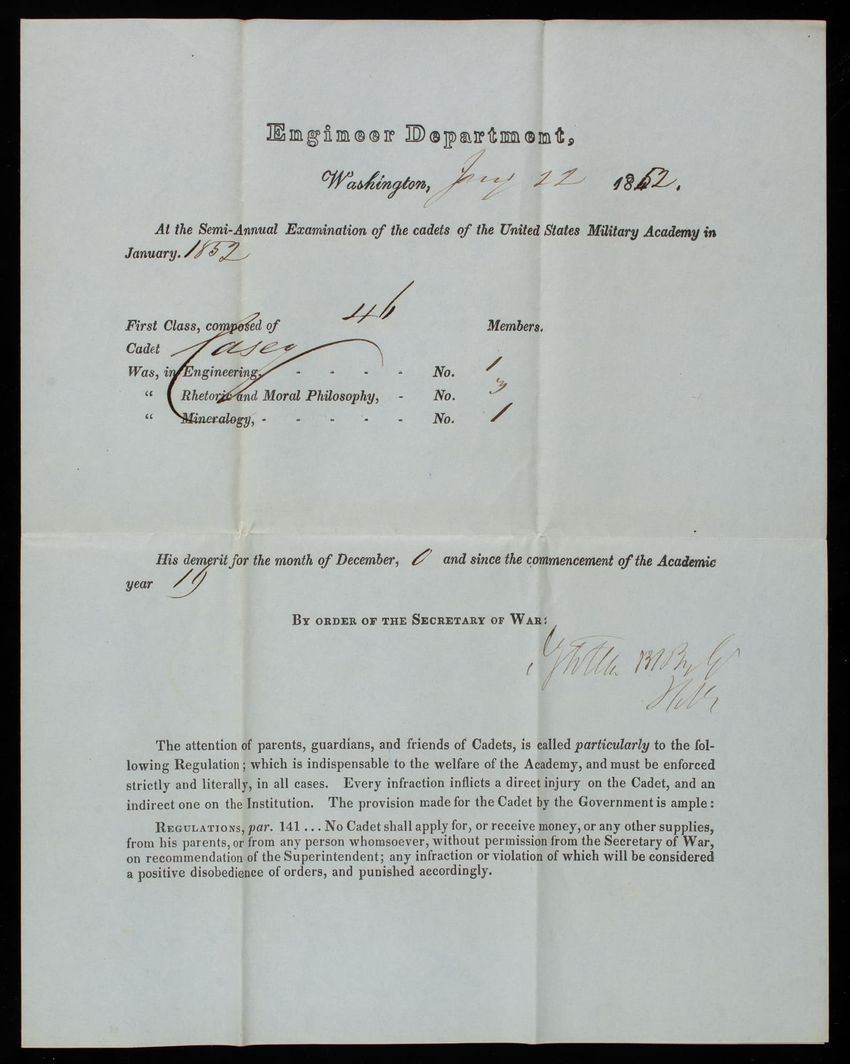 Engineer Department,
Washington, Jany 22 1852.
At the Semi-Annual Examination of the cadets of the United States Military Academy in
January. 1852
First Class, composed of 46 Members.
Cadet Casey
Was, in Engineering, - - - - No. 1
“ Rhetoric and Moral Philosophy, - No. 3
“ Mineralogy, - - - - - No. 1
His demerit for the month of December, 0 and since the commencement of the Academic
year 19
By order of the Secretary of War:
The attention of parents, guardians, and friends of Cadets, is called particularly to the fol-
lowing Regulation; which is indispensable to the welfare of the Academy, and must be enforced
strictly and literally, in all cases. Every infraction inflicts a direct injury on the Cadet, and an
indirect one on the Institution. The provision made for the Cadet by the Government is ample:
Regulations, par. 141 ... No Cadet shall apply for, or receive money, or any other supplies,
from his parents, or from any person whomsoever, without permission from the Secretary of War,
on recommendation of the Superintendent; any infraction or violation of which will be considered
a positive disobedience of orders, and punished accordingly.